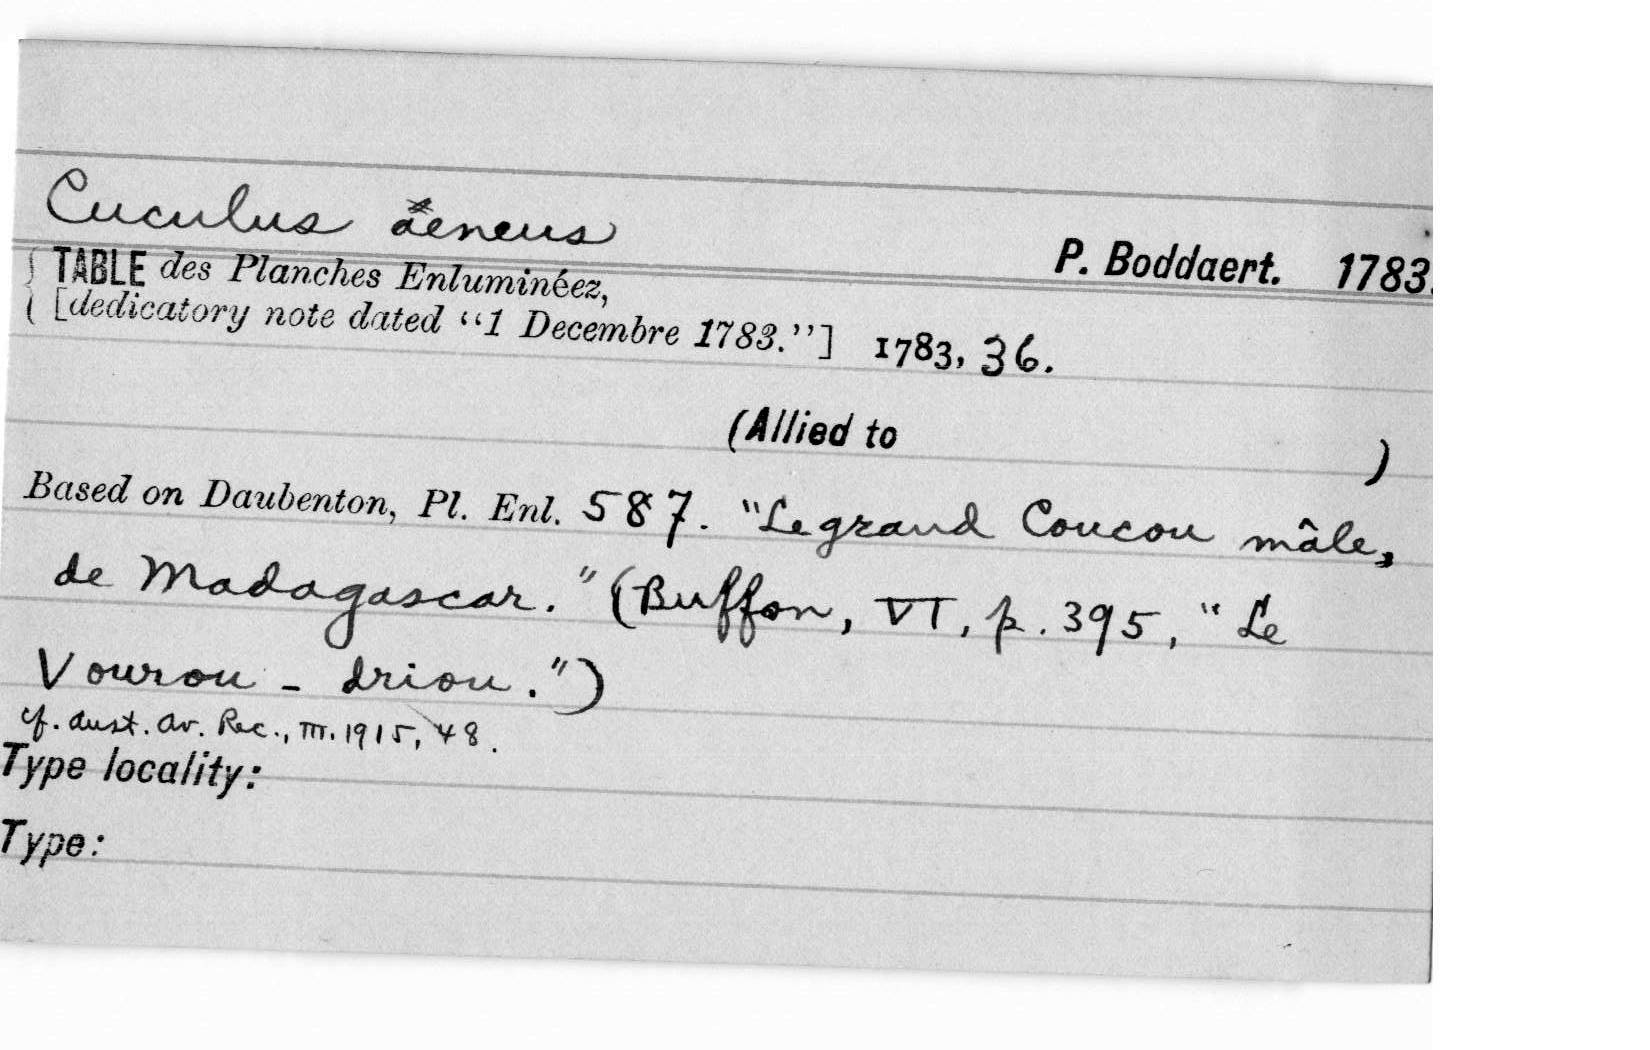 Cuculus aeneus
P. Boddaert. 1783.
{ TABLE des Planches Enluminéez,
[dedicatory note dated "1 Decembre 1783."] 1783, 36.
(Allied to )
Based on Daubenton, Pl. Enl. 587. "Le grand Coucou mâle,
de Madagascar." (Buffon, VI, p. 395, "Le
Vourou-driou.")
cf. Aust. Av. Rec., III. 1915, 48.
Type locality:
Type: